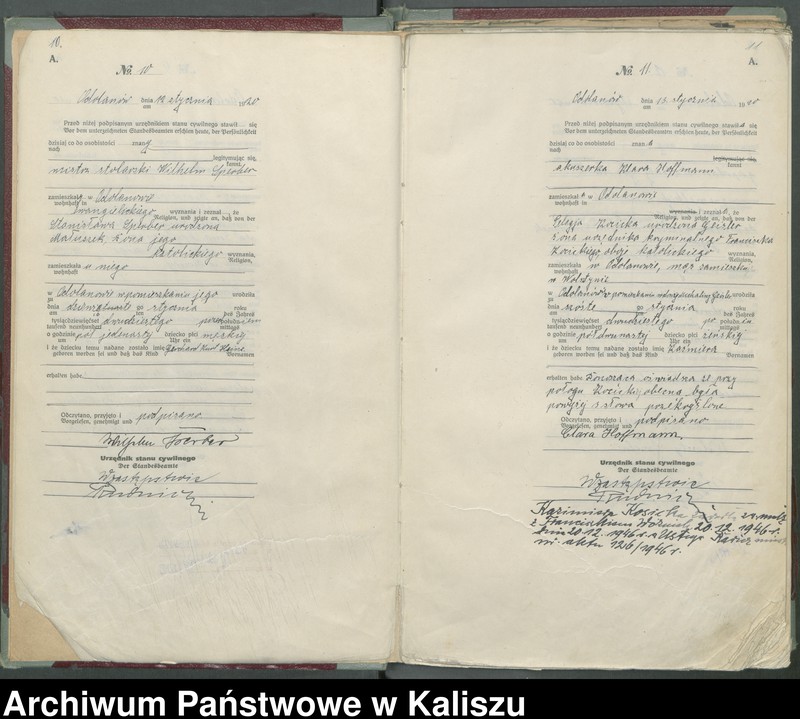 10.
A.
No. 10
Odolanów dnia 12 stycznia 1920
am
Przed niżej podpisanym urzędnikiem stanu cywilnego stawił się
Vor dem unterzeichneten Standesbeamten erschien heute, der Persönlichkeit
dzisiaj co do osobistości znany
nach
legitymując się,
kannt,
mistrz stolarski Wilhelm Sperber
zamieszkały w Odolanowie
wohnhaft in
Ewangelickiego wyznania i zeznał, że
Religion, und zeigte an, daß von der
Stanisława Sperber urodzona
Matuszek żona jego
katolickiego wyznania,
Religion,
zamieszkała u niego
wohnhaft
w Odolanowie w pomieszkaniu jego urodziła
zu
dnia stycznia roku
am ten des Jahres
tysiącdziewięćset dwudziestego przed południem
tausend neunhundert mittags
o godzinie pół jedenastej dziecko płci męskiej
um Uhr ein
i że dziecku temu nadane zostało imię Gerhard Karl Heinz
geboren worden sei und daß das Kind Vornamen
erhalten habe
Odczytano, przyjęto i podpisano
Vorgelesen, genehmigt und
Wilhelm Sperber
Urzędnik stanu cywilnego
Der Standesbeamte
W zastępstwie
11
A.
No. 11
Odolanów dnia 13 stycznia 1920
am
Przed niżej podpisanym urzędnikiem stanu cywilnego stawiła się
Vor dem unterzeichneten Standesbeamten erschien heute, der Persönlichkeit
dzisiaj co do osobistości znana
nach
legitymując się,
kannt
akuszerka Klara Hoffmann
zamieszkała w Odolanowie
wohnhaft in
wyznania i zeznała, że
Religion, und zeigte an, daß von der
urodzona Geisler
żona urzędnika kryminalnego Franciszka
Kosickiego, oboje katolickiego wyznania,
Religion,
zamieszkała w Odolanowie, mąż zamieszkały
wohnhaft
w Wolsztynie
w Odolanowie w pomieszkaniu urodziła
zu
dnia szóste go stycznia roku
am ten des Jahres
tysiącdziewięćset dwudziestego po południu
tausend neunhundert mittags
o godzinie pół dwunastej dziecko płci żeńskiej
um Uhr ein
i że dziecku temu nadane zostało imię Kazimiera
geboren worden sei und daß das Kind Vornamen
erhalten habe. Donosząca oświadcza że przy
połogu Kosickiej obecna była
powyżej 5 słowa przekreślone
Odczytano, przyjęto i podpisano
Vorgelesen, genehmigt und
Clara Hoffmann
Urzędnik stanu cywilnego
Der Standesbeamte
W zastępstwie
Kazimiera Kosicka zw. małż.
z Franciszkiem 20.12.1946 r.
dnia 20.12.1946 r. w Kalisz
nr. aktu 126/1946 r.
Archiwum Państwowe w Kaliszu